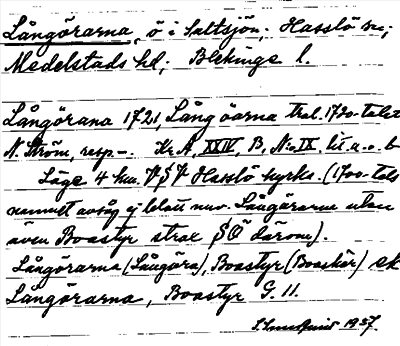 Långörarna, ö i Saltsjön; Hasslö sn;
Medelstads hd; Blekinge l.
Långörana 1721, Långöarna tral. 1730-talet
N. Ström, resp -. Kr.A, XXIV, B, N:o IX. lit. a. o. b
Läge 4 km. V§V Hasslö kyrka. (1700-tals
namnet avsåg ej blott nuv. Långörarna utan
även Boastyr strax §Ö därom).
Långörarna (Långöra), Boastyr (Boaskär) ek
Långörarna, Boastyr G. 11.
1937